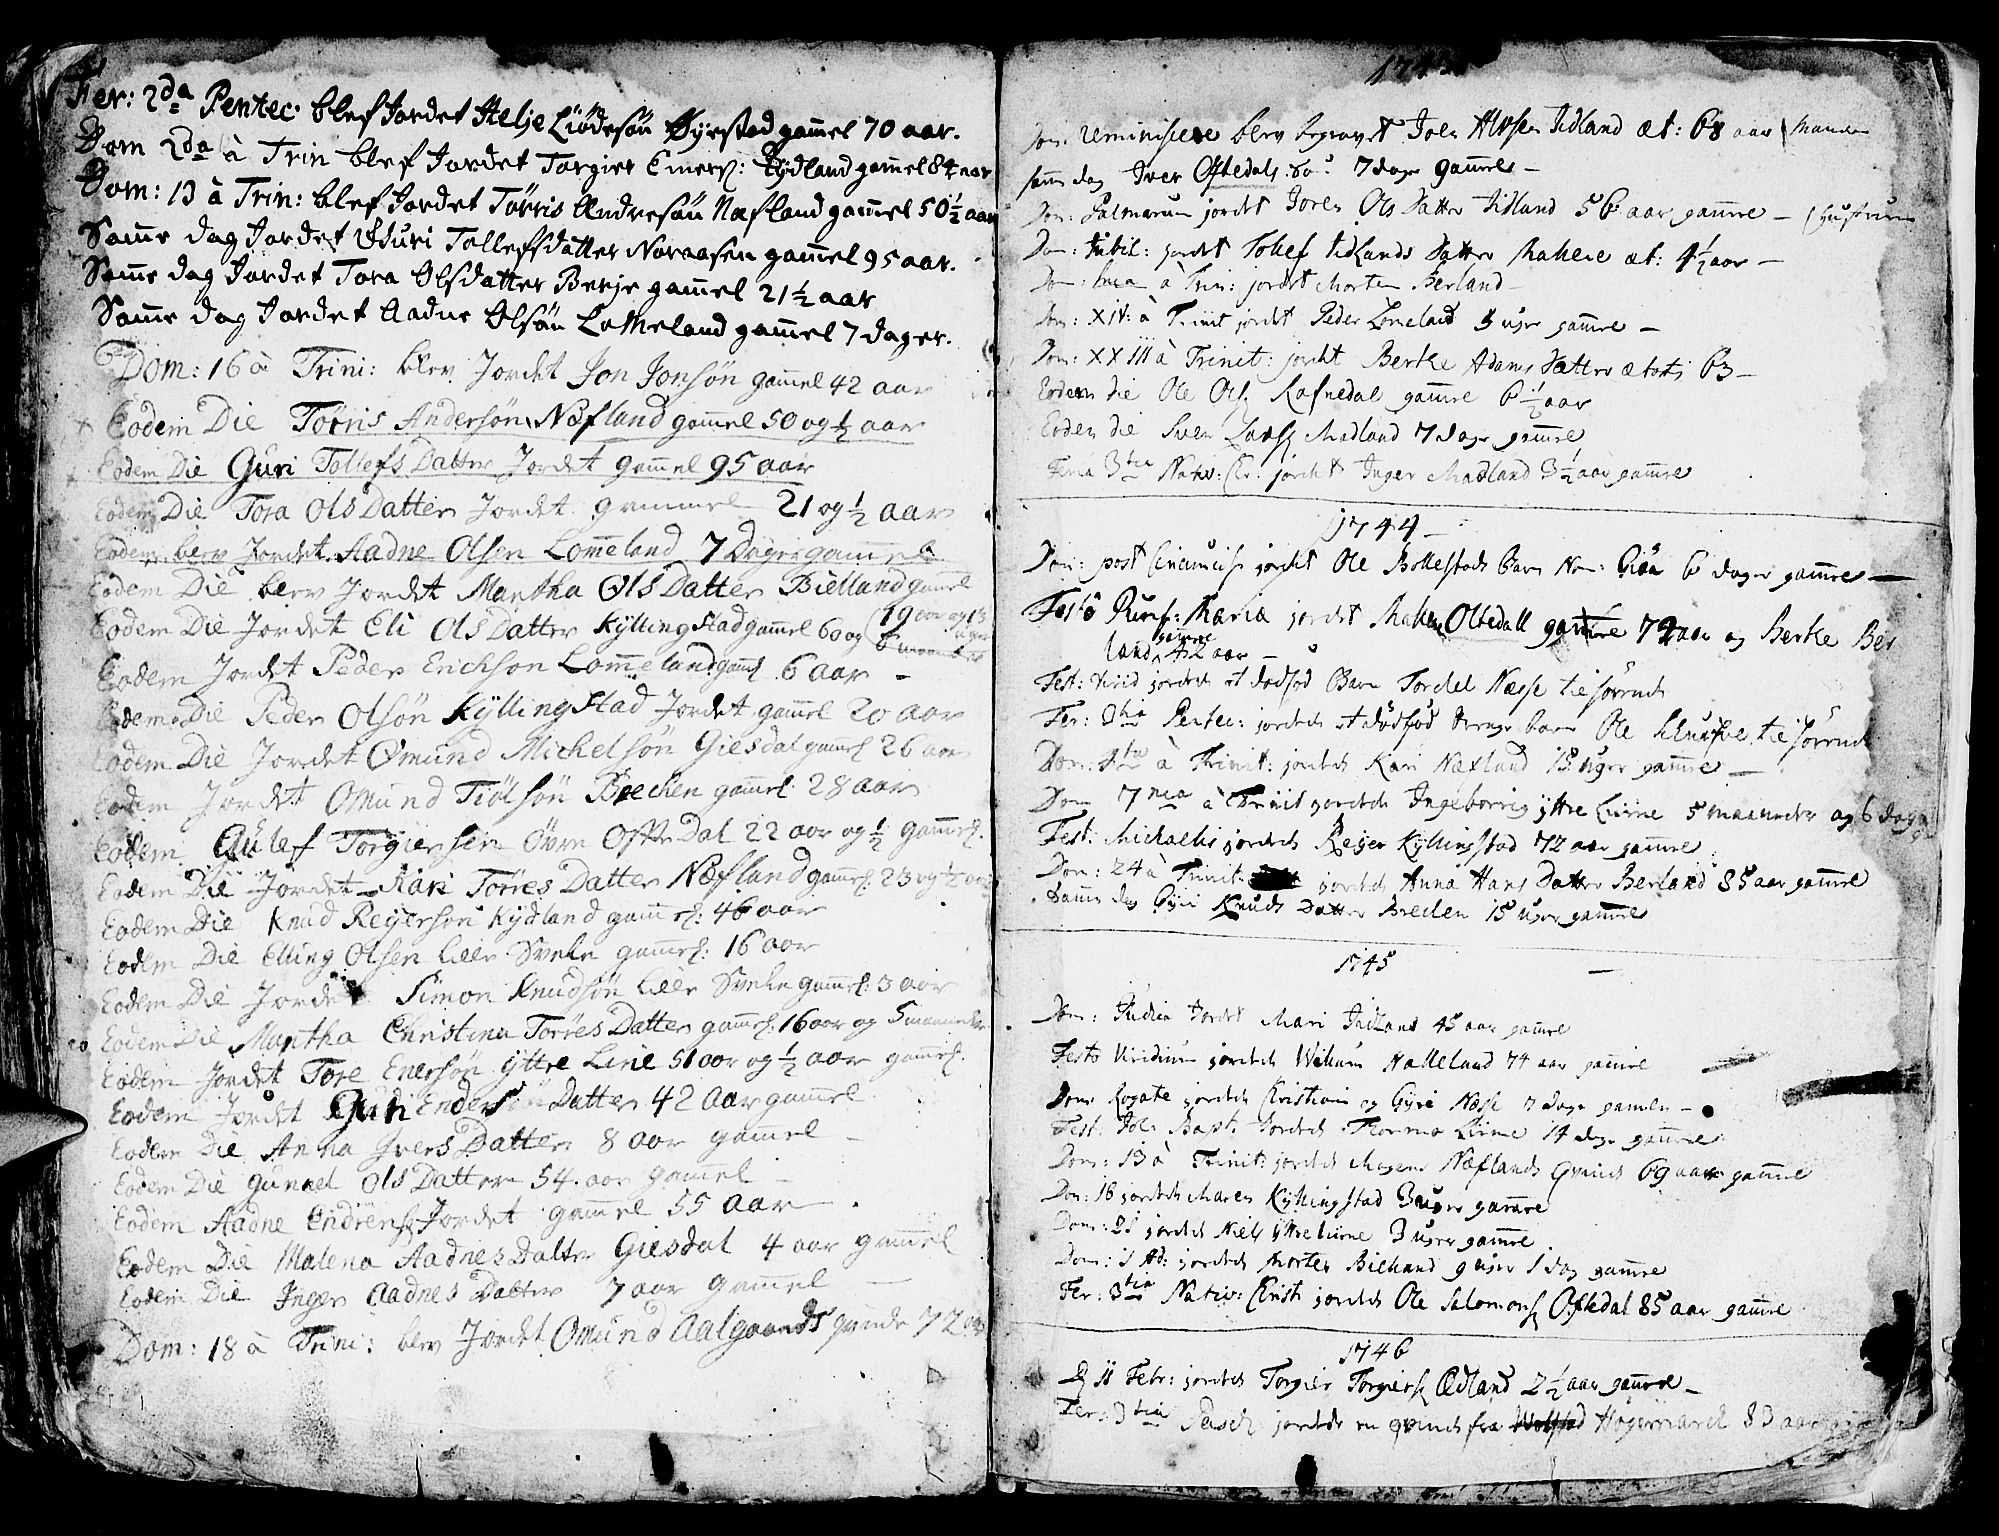 Fer: 2da Pentec: blef Jordet Helje Liødesøn Øyestad gamel 70 aar.
Dom 2da à Trin blef Jordet Torgier Eners: Kydland gamel 84 aar
Dom: 13 à Trin: blef Jordet Törris Andresøn Næfland gamel 50 1/2 aar
Samme dag Jordet Guri Tollefsdatter Noraasen gamel 95 aar.
Samme dag Jordet Tora Olsdatter Berje gamel 21 1/2 aar
Samme dag Jordet Aadne Olsøn Lomeland gamel 7 dager.
Dom: 16 à Trini: blev Jordet Jon Jonsön gamel 42 aar
Eodem Die Torris Andersøn Næfland gamel 50 og 1/2 aar
Eodem Die Guri Tollefs Datter Jordet gamel 95 aar
Eodem Die Tora Ols Datter Jordet gammel 21 og 1/2 aar
Eodem blev Jordet Aadne Olsen Lomeland 7 Dager gammel
Eodem Die blev Jordet Martha Ols Datter Bielland gamel
19 aar og 13 uger
Eodem Die Jordet Eli Ols Datter Kyllingstad gamel 60 og 6 maaneder
Eodem Jordet Peder Erichson Lomeland gamel 6 aar -
Eodem Die Peder Olsön Kyllingstad Jordet gamel 20 aar
Eodem Die Jordet Ømund Michelsön Giesdal gamel 26 aar
Eodem Jordet Omund Tiölsön Brechen gamel 28 aar
Eodem Gulef Torgiersen Övre Oftedal 22 aar og 1/2 gamel.
Eodem Die Jordet Kari Torres Datter Næfland gamel: 23 og 1/2 aar
Eodem Die Knud Reyerson Kydland gamel: 46 aar
Eodem Die Elling Olsen Lille Svele gamel: 16 aar
Eodem Die Jordet Simon Knudsön Lille Svele gamel: 3 aar
Eodem Die Martha Christina Torres Datter gamel: 16 aar og 5 maaneder
Eodem Jordet Tore Enersön yttre Lime 51 aar og 1/2 aar gamel.
Eodem Jordet Guri Enders Datter 42 aar gamel
Eodem Die Anna Ivers Datter 8 aar gamel
Eodem Die Gunnel Ols Datter 54. aar gamel
Eodem Aadne Endrens: Jordet gamel 55 aar
Eodem Die Malena Aadnes Datter Giesdal 4 aar gamel
Eodem Die Inger Aadnes Datter 7 aar gamel
Dom: 18 à Trini: blev Jordet Omund Aalgaards qvinde 72 aar
174
Dom: Reminiscere blev begravet Joen Alvsen Tidland æt: 68 aar Manden
samme dag Iver Oftedals 7 dage gamel -
Dom: Palmarum jordet Joren Ols Datter Tidland 56 aar gamle - (hustruen
Dom: Jubil: jordet Tollef Tidlands Datter Malene æt: 4 1/2 aar -
Dom: à Trin: jordet Morten Berland
Dom: XIV: à Trinit jordet Peder Lomeland 3 uger gamle -
Dom: XXIII à Trinit: jordet Berte Adams Datter ætatis 63 -
Eodem die Ole Ols: Rafnedal gamle 6 1/2 aar
Eodem die Sven Lars: Madland 7 dage gamle
Feria 3tia Nativ: Chr: jordet Inger Madland 3 1/2 aar gamle
1744
Dom: post Circumcis: jordet Ole Bollestads Barn Nom: Giða 6 dager gamel
Festo Purif: Maria jordet Malene Oltedall gamle 72 aar og Berte Ber
land gamle 42 aar -
Fest: Virid jordet et dødfød Barn Torchel Næsse tilhørende
Fer: 3tia Pentec: jordet et dødfød drenge barn Ole tilhørende
Dom: 4ta à Trinit: jordet Kari Nævland 18 uger gamle
Dom 7ma à Trinit jordet Ingeborrig yttre Liime 5 maaneder og 6 dage
Fest: Michaelis jordet Reijer Kyllingstad 72 aar gamle
Dom: 24 à Trinit: jordet Anna Hans Datter Berland 85 aar gamle
Samme dag Gyri Knuds Datter Brechen 15 uger gamle
1745
Dom: Judica Jordet Mari Tidland 45 aar gamle
Festo Viridium jordet Willum Halleland 74 aar gamle
Dom: Rogate jordet Kristian og Gyri Næsse 7 dage gamle -
Fest: Joh: Bapt: Jordet Thormo Liime 14 dage gamle
Dom: 13 à Trinit: jordet Mogens Næflands Qvinde 69 aar gamle
Dom: 16 jordet Maren Kyllingstad 3 uger gamle
Dom: 21 jordet Niels yttre Liime 3 uger gamle
Dom: 1 Ad: jordet Morten Bielland 9 uger 1 dag gamle
Fer: 3tia Nativ: Christi jordet Ole Salomons: Oftedal 85 aar gamle
1746
D 11 Febr: jordet Torgier Torgiers: Ødland 2 1/2 aar gamle -
Fer: 3tia Pasch: jordet en qvinde fra Høgemarck 83 aar